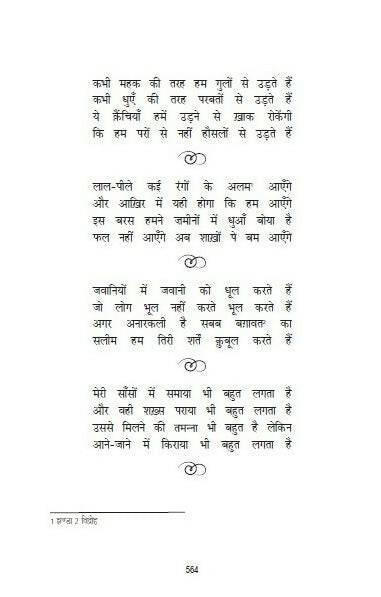 कभी महक की तरह हम गुलों से उड़ते हैं
कभी धुएँ की तरह परबतों से उड़ते हैं
ये क़ैंचियाँ हमें उड़ने से ख़ाक रोकेंगी
कि हम परों से नहीं हौसलों से उड़ते हैं
लाल-पीले कई रंगों के अलम¹ आएँगे
और आख़िर में यही होगा कि हम आएँगे
इस बरस हमने जमीनों में धुआँ बोया है
फल नहीं आएँगे अब शाख़ों पे बम आएँगे
जवानियों में जवानी को धूल करते हैं
जो लोग भूल नहीं करते भूल करते हैं
अगर अनारकली है सबब बग़ावत² का
सलीम हम तिरी शर्तें क़ुबूल करते हैं
मेरी साँसों में समाया भी बहुत लगता है
और वही शख़्स पराया भी बहुत लगता है
उससे मिलने की तमन्ना भी बहुत है लेकिन
आने-जाने में किराया भी बहुत लगता है
1 झण्डा 2 विद्रोह
564